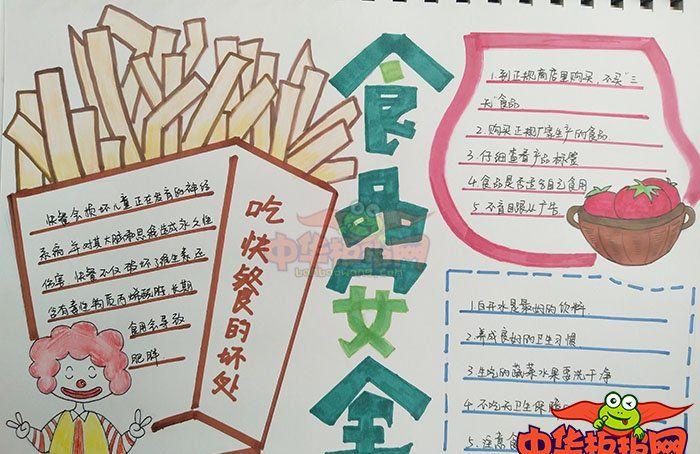 食品安全
吃快餐的坏处
快餐会损坏儿童正在发育的神经
系统,并对其大脑和思维造成永久性
伤害 快餐不仅破坏了维生素还
含有毒性物质丙烯酰胺 长期
食用会导致
肥胖
1.到正规商店里购买,不买"三
无"食品
2.购买正规厂家生产的食品
3.仔细查看产品标签
4.食品是否适合自己食用
5.不盲目随从广告
1.白开水是最好的饮料
2.养成良好的卫生习惯
3.生吃的蔬菜水果要洗干净
4.不吃无卫生保障
5.注意食
中华板报网
benbaowang.com
中华板报网